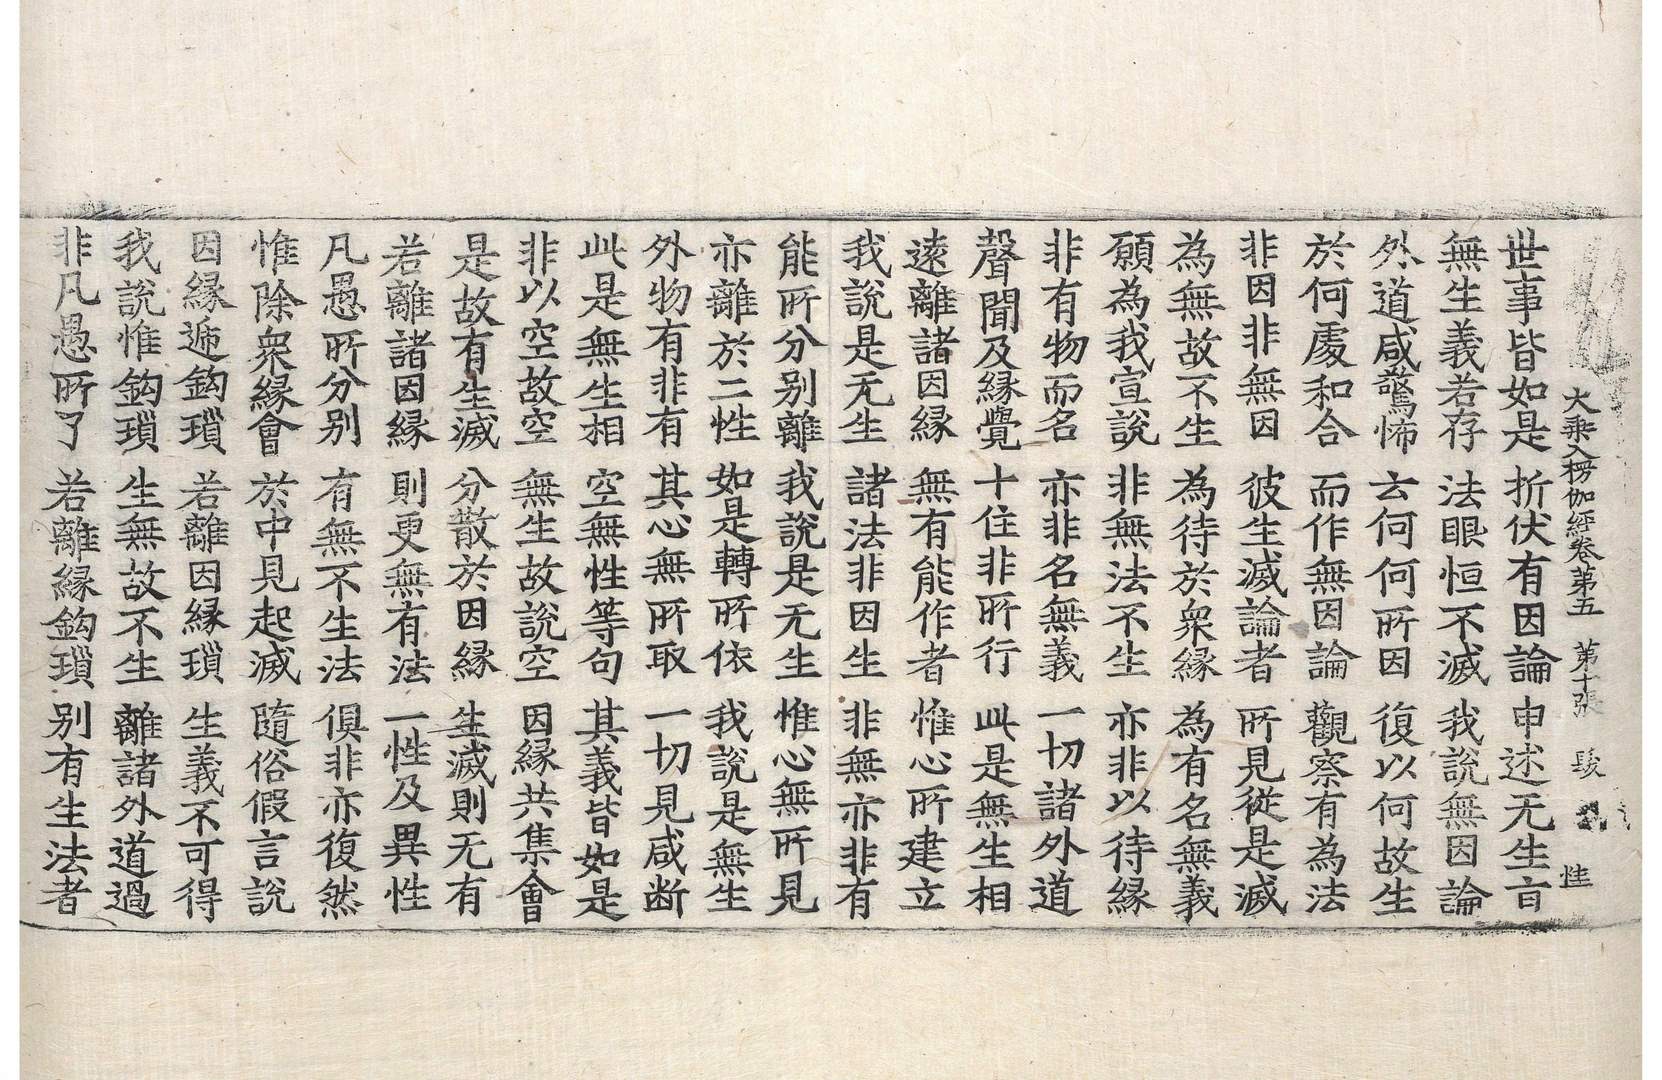 大乘入楞伽經卷第五　第十張　　性
世事皆如是　折伏有因論　申述无生旨
無生義若存　法眼恒不滅　我說無因論
外道咸驚怖　云何何所因　復以何故生
於何處和合　而作無因論　觀察有為法
非因非無因　彼生滅論者　所見從是滅
為無故不生　為待於衆緣　為有名無義
願為我宣說　非無法不生　亦非以待緣
非有物而名　亦非名無義　一切諸外道
聲聞及緣覺　十住非所行　此是無生相
遠離諸因緣　無有能作者　惟心所建立
我說是无生　諸法非因生　非無亦非有
能所分別離　我說是无生　惟心無所見
亦離於二性　如是轉所依　我說是無生
外物有非有　其心無所取　一切見咸断
此是無生相　空無性等句　其義皆如是
非以空故空　無生故說空　因緣共集會
是故有生滅　分散於因緣　生滅則无有
若離諸因緣　則更無有法　一性及異性
凡愚所分別　有無不生法　俱非亦復然
惟除衆緣會　於中見起滅　隨俗假言說
因緣遞鈎瑣　若離因緣瑣　生義不可得
我說惟鈎瑣　生無故不生　離諸外道過
非凡愚所了　若離緣鈎瑣　别有生法者